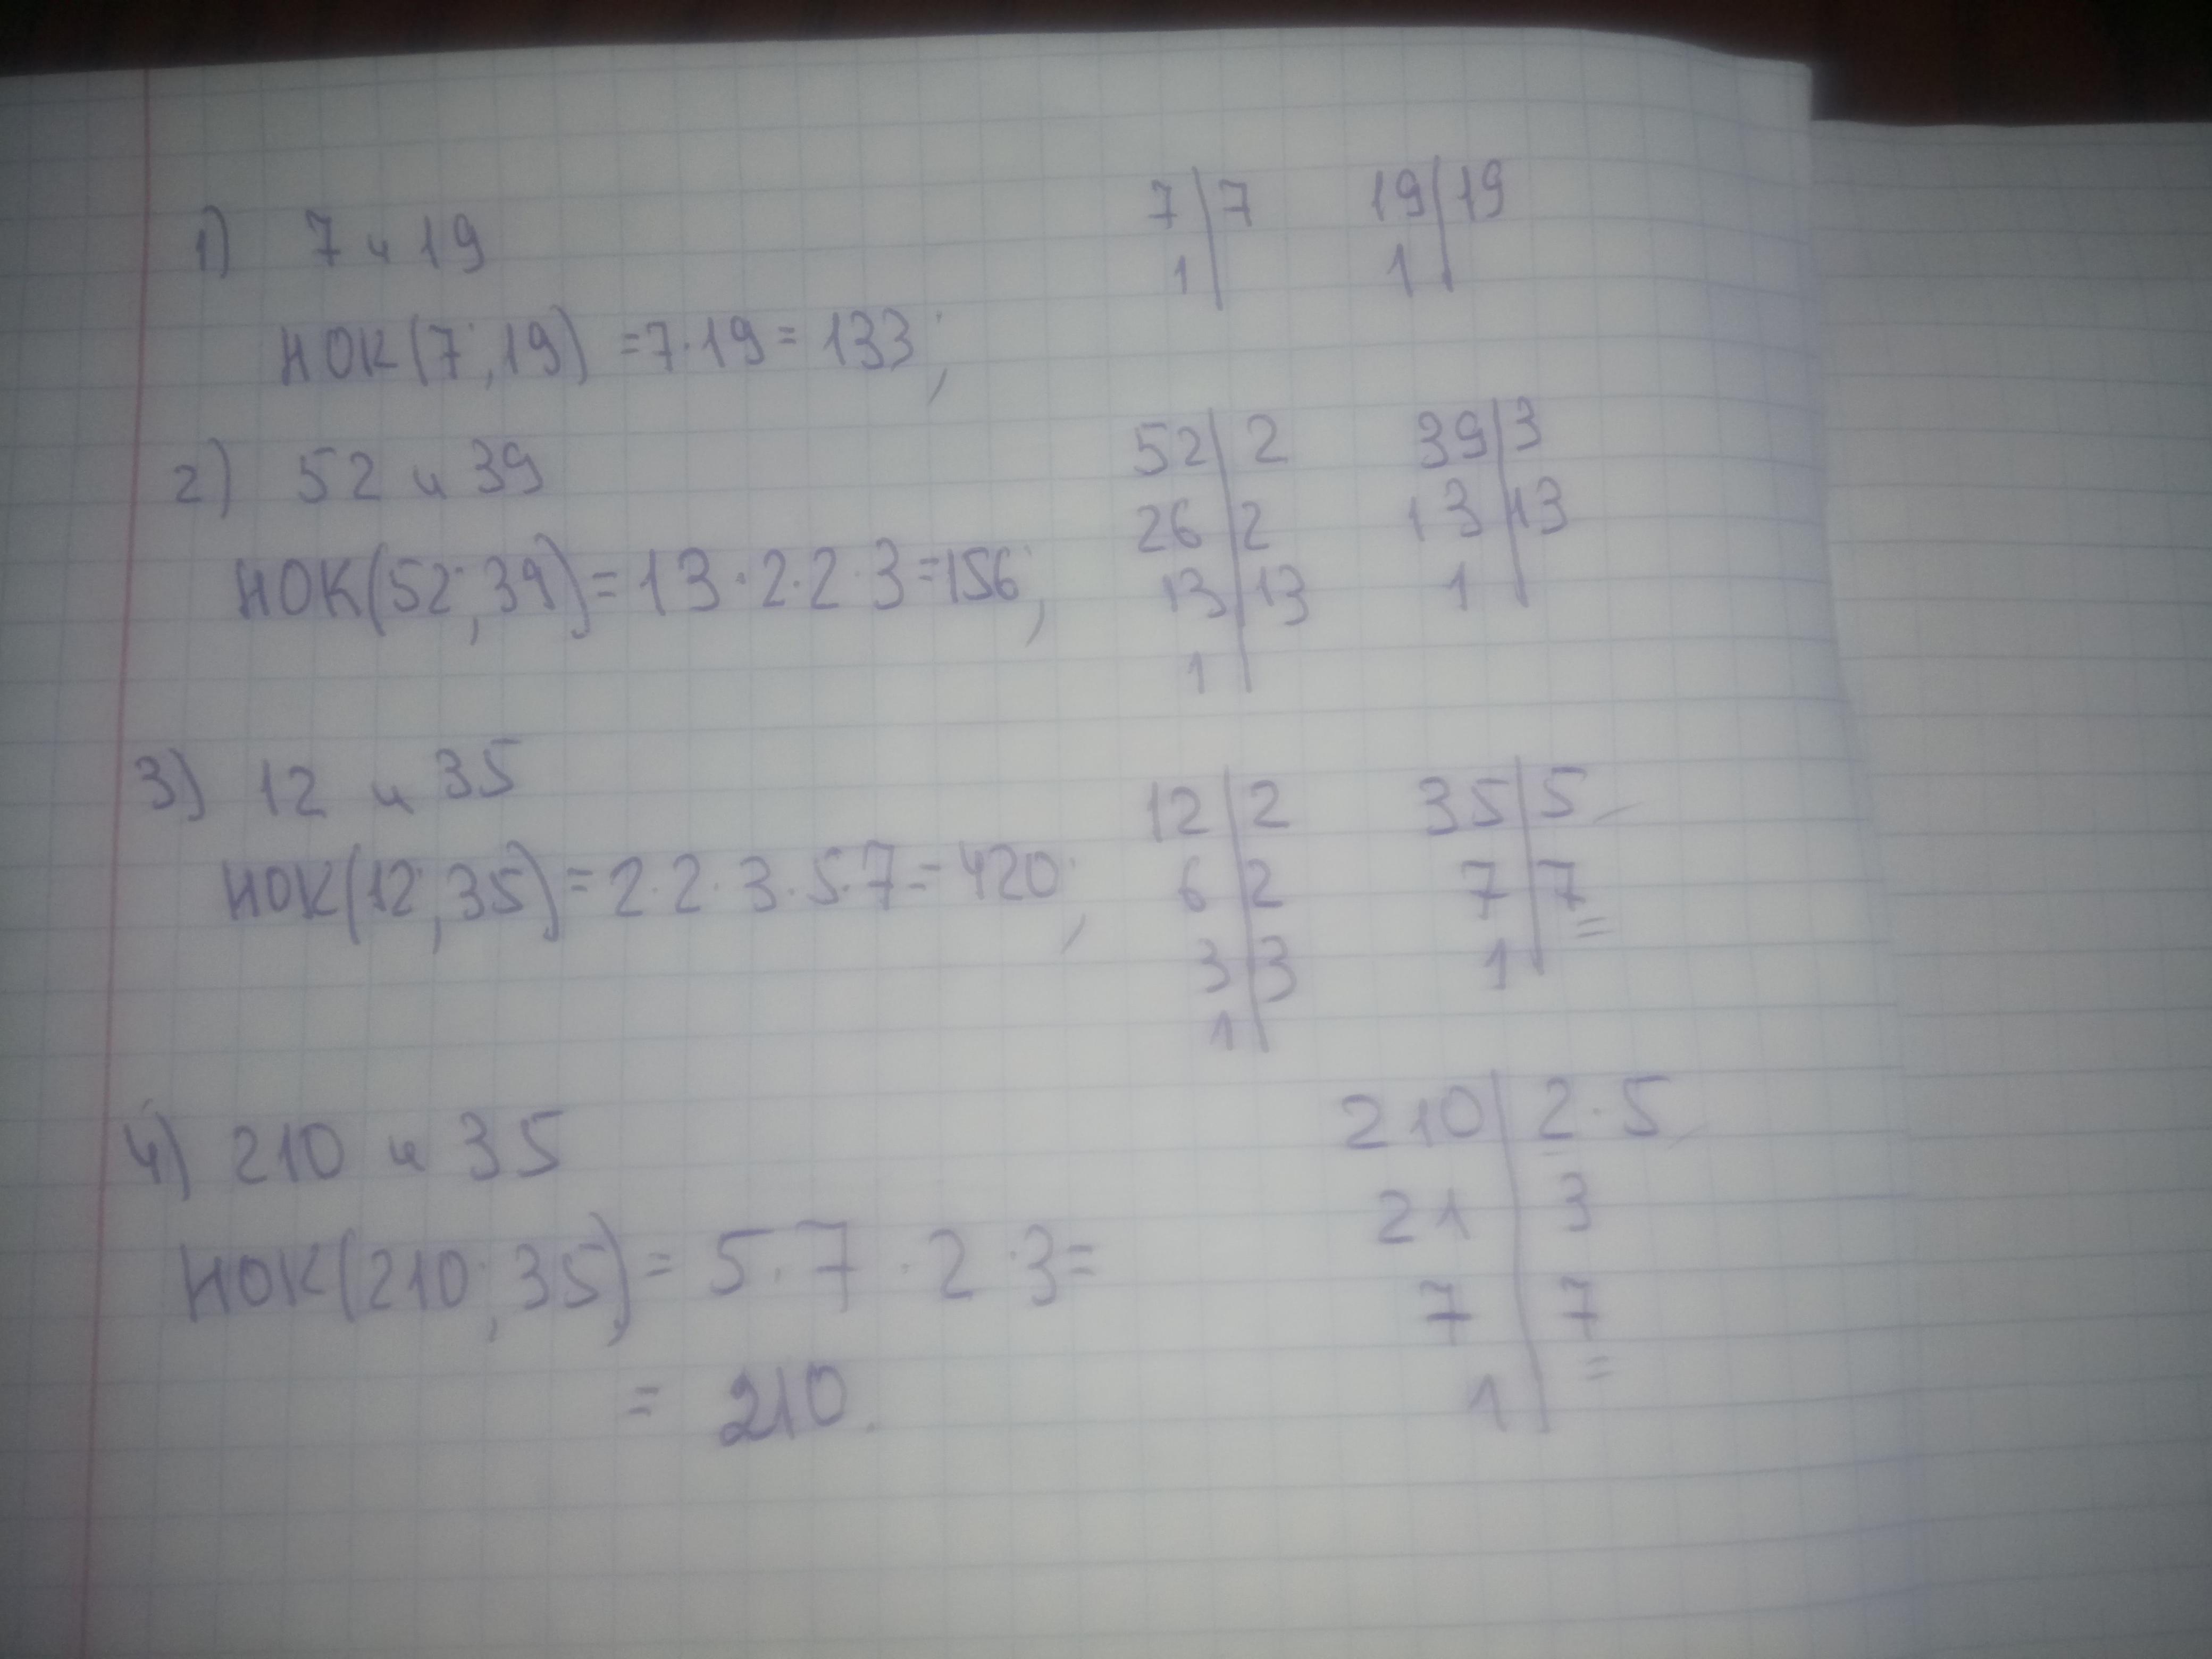 1) 7 и 19
7 | 7 19 | 19
1 | 1 |
НОК(7; 19) = 7·19 = 133;
2) 52 и 39
52 | 2 39 | 3
26 | 2 13 | 13
13 | 13 1 |
1 |
НОК(52; 39) = 13·2·2·3 = 156;
3) 12 и 35
12 | 2 35 | 5
6 | 2 7 | 7
3 | 3 1 |
1 |
НОК(12; 35) = 2·2·3·5·7 = 420;
4) 210 и 35
210 | 2·5
21 | 3
7 | 7
1 |
НОК(210; 35) = 5·7·2·3 =
= 210.